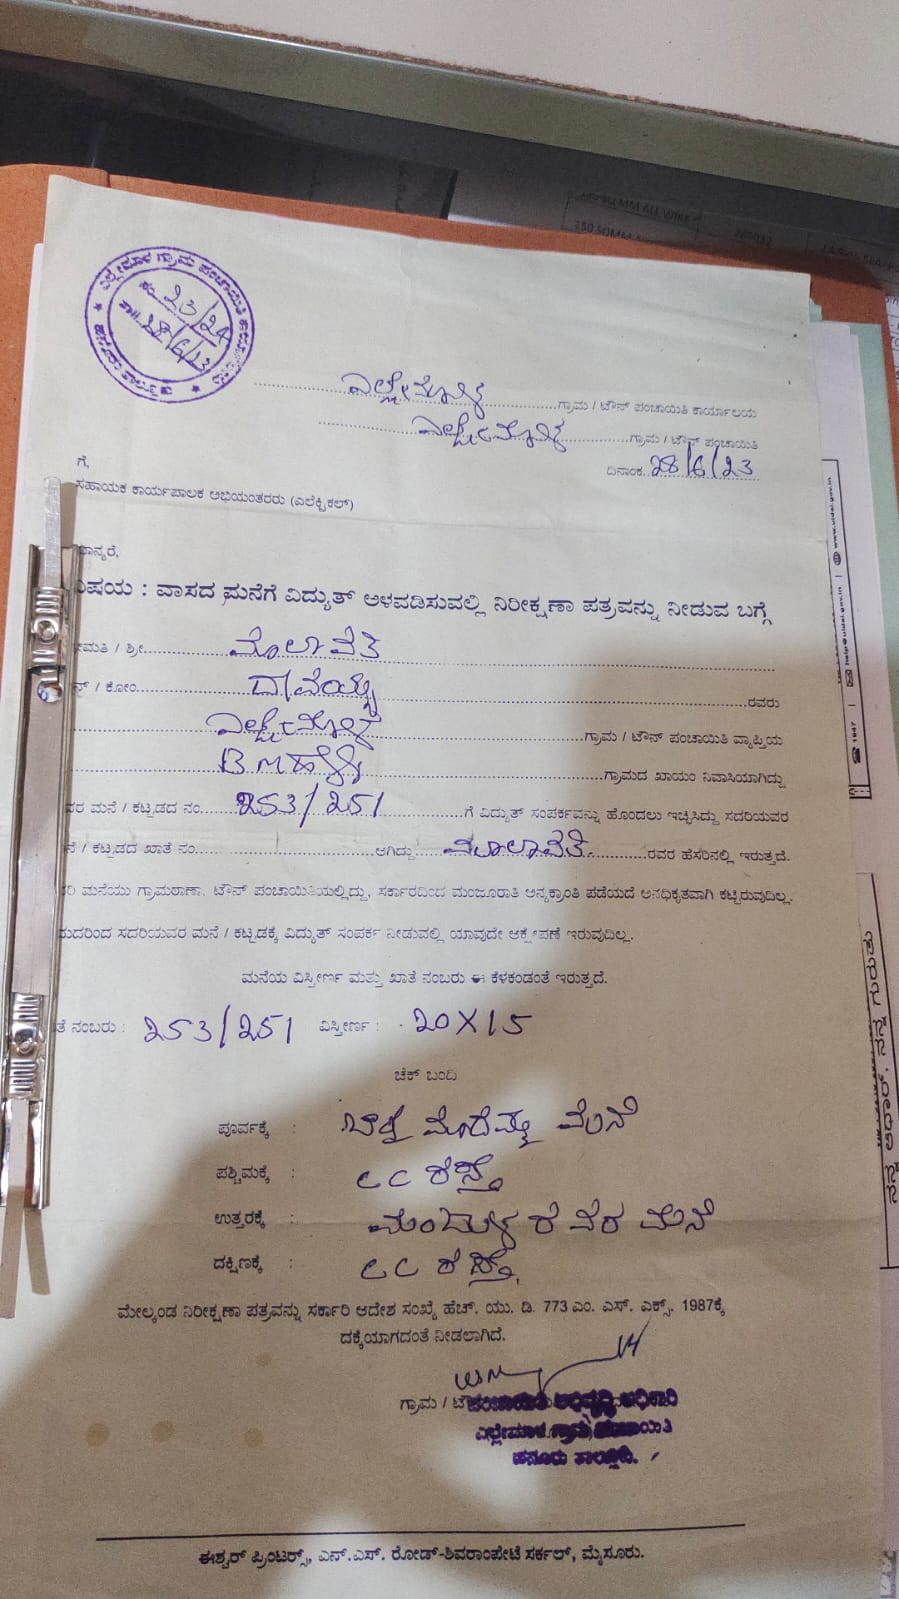 ಎಲ್ಲೇಮಾಳ ಗ್ರಾಮ ಪಂಚಾಯಿತಿ
ಸಂ. 23/24
ತಾ॥ 28/6/23
ಎಲ್ಲೇಮಾಳ ಗ್ರಾಮ / ಟೌನ್ ಪಂಚಾಯಿತಿ ಕಾರ್ಯಾಲಯ
ಎಲ್ಲೇಮಾಳ ಗ್ರಾಮ / ಟೌನ್ ಪಂಚಾಯಿತಿ
ದಿನಾಂಕ. 28/6/23
ಗೆ,
ಸಹಾಯಕ ಕಾರ್ಯಪಾಲಕ ಅಭಿಯಂತರರು (ಎಲೆಕ್ಟ್ರಿಕಲ್)
ಮಾನ್ಯರೆ,
ವಿಷಯ : ವಾಸದ ಮನೆಗೆ ವಿದ್ಯುತ್ ಅಳವಡಿಸುವಲ್ಲಿ ನಿರೀಕ್ಷಣಾ ಪತ್ರವನ್ನು ನೀಡುವ ಬಗ್ಗೆ
ಮತಿ / ಶ್ರೀ
ನ್ / ಕೋಂ ರವರು
ಎಲ್ಲೇಮಾಳ ಗ್ರಾಮ / ಟೌನ್ ಪಂಚಾಯಿತಿ ವ್ಯಾಪ್ತಿಯ
B.M ಹಳ್ಳಿ ಗ್ರಾಮದ ಖಾಯಂ ನಿವಾಸಿಯಾಗಿದ್ದು
ವರ ಮನೆ / ಕಟ್ಟಡದ ನಂ. 253/251 ಗೆ ವಿದ್ಯುತ್ ಸಂಪರ್ಕವನ್ನು ಹೊಂದಲು ಇಚ್ಛಿಸಿದ್ದು ಸದರಿಯವರ
ನೆ / ಕಟ್ಟಡದ ಖಾತೆ ನಂ. ಆಗಿದ್ದು ರವರ ಹೆಸರಿನಲ್ಲಿ ಇರುತ್ತದೆ.
ರಿ ಮನೆಯು ಗ್ರಾಮಠಾಣಾ. ಟೌನ್ ಪಂಚಾಯಿತಿಯಲ್ಲಿದ್ದು, ಸರ್ಕಾರದಿಂದ ಮಂಜೂರಾತಿ ಅನ್ಯಕ್ರಾಂತಿ ಪಡೆಯದೆ ಅನಧಿಕೃತವಾಗಿ ಕಟ್ಟಿರುವುದಿಲ್ಲ.
ದುದರಿಂದ ಸದರಿಯವರ ಮನೆ / ಕಟ್ಟಡಕ್ಕೆ ವಿದ್ಯುತ್ ಸಂಪರ್ಕ ನೀಡುವಲ್ಲಿ ಯಾವುದೇ ಆಕ್ಷೇಪಣೆ ಇರುವುದಿಲ್ಲ.
ಮನೆಯ ವಿಸ್ತೀರ್ಣ ಮತ್ತು ಖಾತೆ ನಂಬರು ಈ ಕೆಳಕಂಡಂತೆ ಇರುತ್ತದೆ.
ತೆ ನಂಬರು : 253/251 ವಿಸ್ತೀರ್ಣ : 20X15
ಚೆಕ್ ಬಂದಿ
ಪೂರ್ವಕ್ಕೆ : ಮನೆ
ಪಶ್ಚಿಮಕ್ಕೆ : CC ರಸ್ತೆ
ಉತ್ತರಕ್ಕೆ : ಮನೆ
ದಕ್ಷಿಣಕ್ಕೆ : CC ರಸ್ತೆ
ಮೇಲ್ಕಂಡ ನಿರೀಕ್ಷಣಾ ಪತ್ರವನ್ನು ಸರ್ಕಾರಿ ಆದೇಶ ಸಂಖ್ಯೆ ಹೆಚ್. ಯು. ಡಿ. 773 ಎಂ. ಎಸ್. ಎಕ್ಸ್. 1987ಕ್ಕೆ
ದಕ್ಕೆಯಾಗದಂತೆ ನೀಡಲಾಗಿದೆ.
ಗ್ರಾಮ / ಟೌ
ಪಂಚಾಯಿತಿ ಅಭಿವೃದ್ಧಿ ಅಧಿಕಾರಿ
ಎಲ್ಲೇಮಾಳ ಗ್ರಾಮ ಪಂಚಾಯಿತಿ
ಹನೂರು ತಾಲ್ಲೂಕು.
ಈಶ್ವರ್ ಪ್ರಿಂಟರ್ಸ್, ಎನ್.ಎಸ್. ರೋಡ್-ಶಿವರಾಂಪೇಟೆ ಸರ್ಕಲ್, ಮೈಸೂರು.
1947
help@uidai.gov.in
www.uidai.gov.in
ನನ್ನ ಆಧಾರ್, ನನ್ನ ಗುರುತು